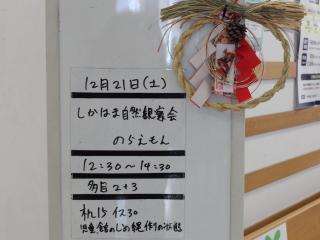 12月21日(土)
しかはま自然観察会
のらえもん
12:30〜14:30
多目2+3
机15 イス30
児童館のしめ縄作りの